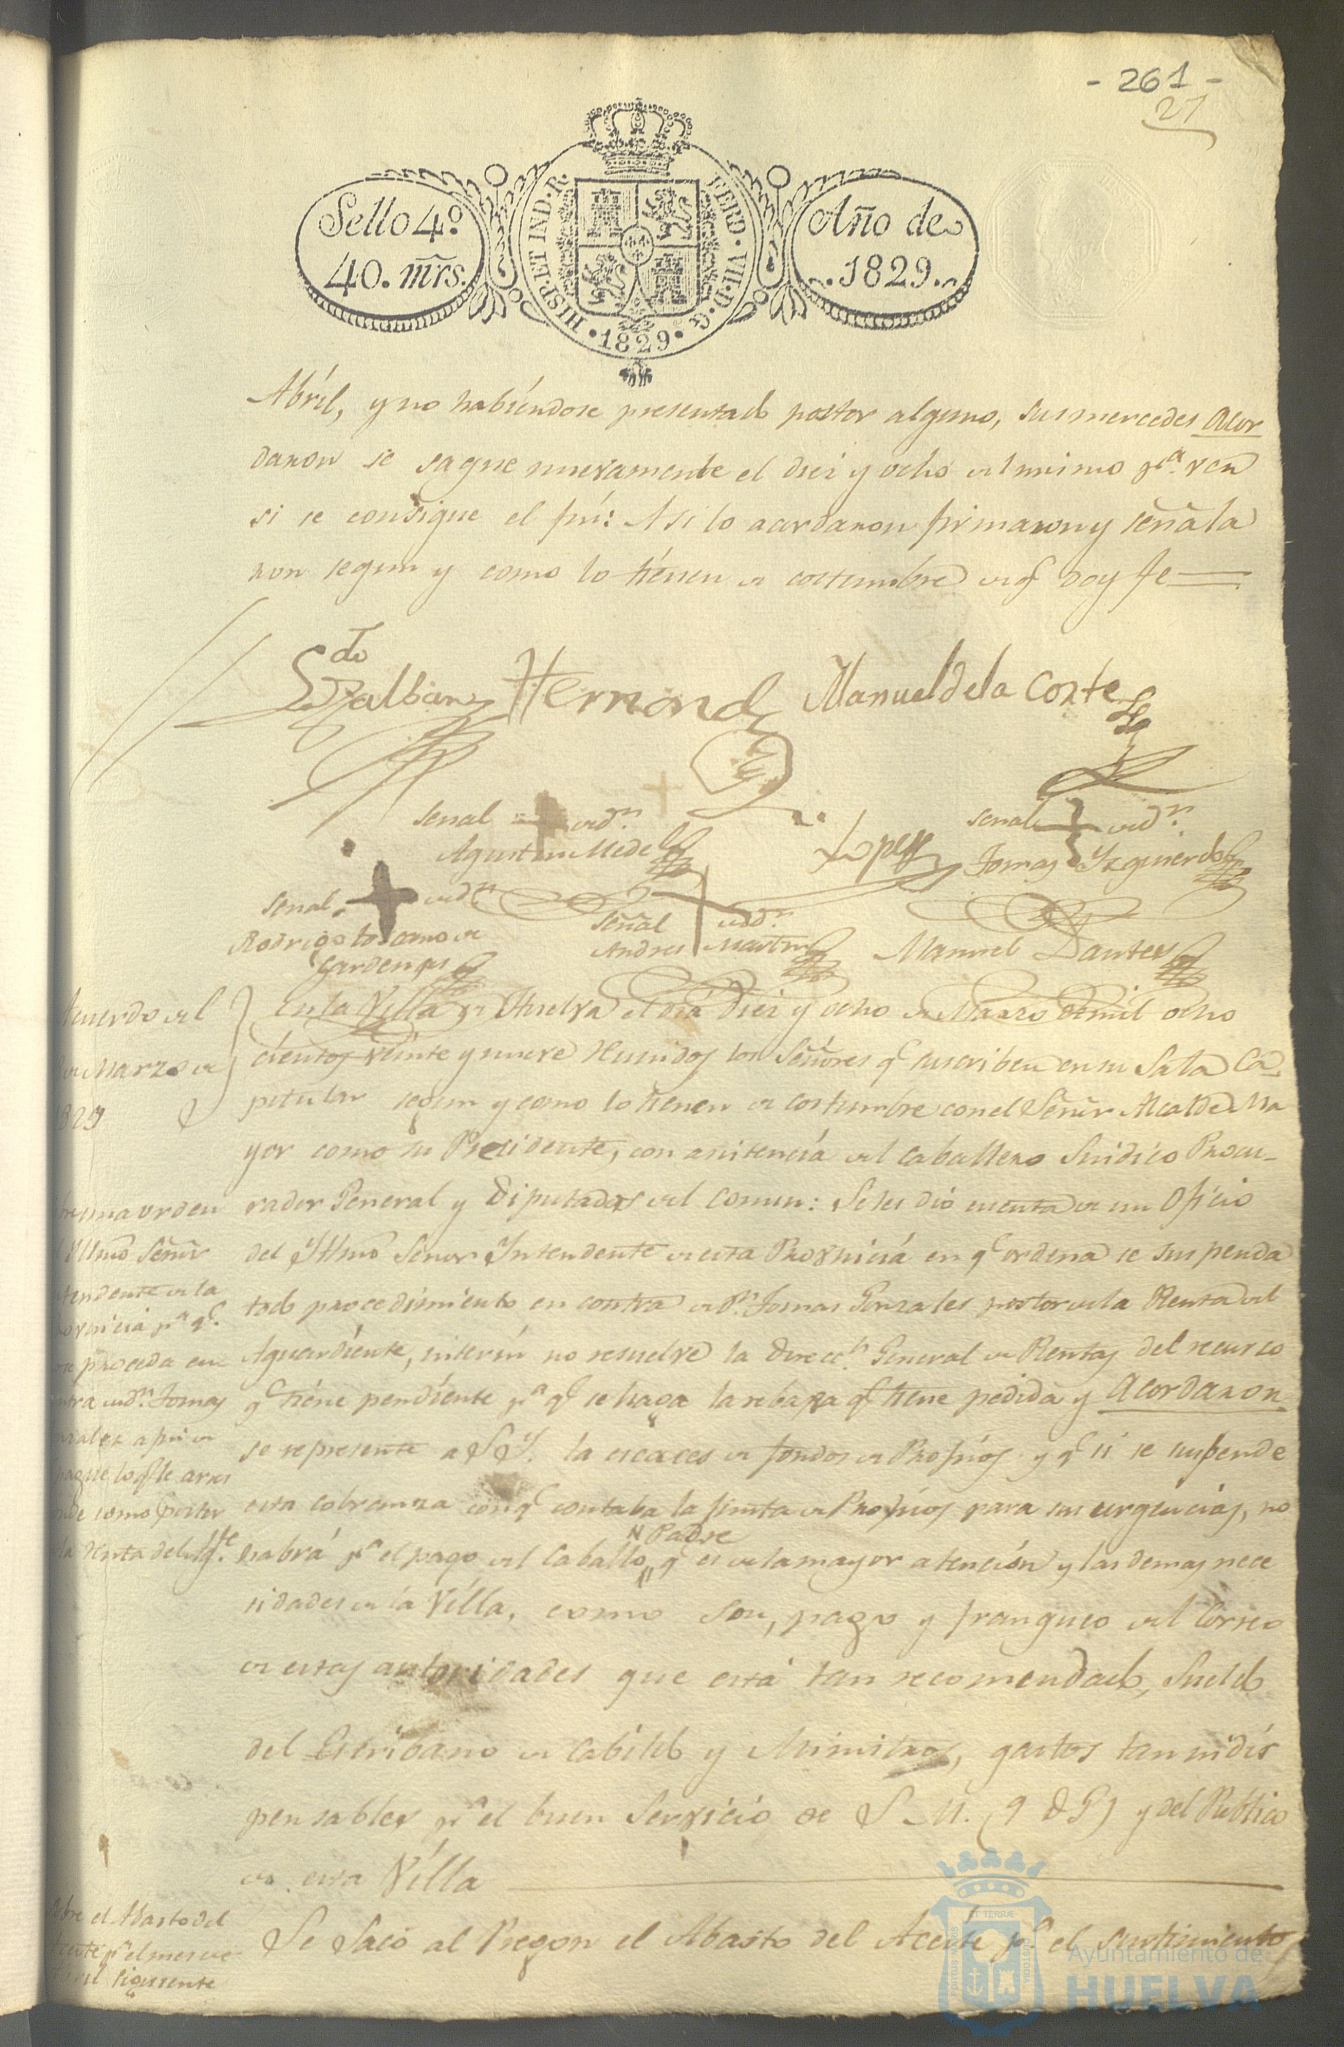 - 261 -
27
Sello 4.º
40. mrs.
HISP. ET IND. R.
FERD. VII. D. G.
1829
Año de
1829.
Abríl, y no habiéndose presentado postor alguno, sus mercedes acor
daron se saque nuevamente el diez y ocho del mismo pª. ver
si se consigue el fin: Asi lo acordaron firmaron y señala
ron segun y como lo tienen de costumbre de q doy fe
Hernand
Manuel de la Corte
Señal de dn.
Agustin Mede
Lopez
señal de dn.
Tomas Yzquierdo
señal de dn
Rodrigo
Cardenas
señal de dn.
Andres Martin
Manuel
Acuerdo del
de Marzo de
1829
En la Villa de Huelva el dia Diez y ocho de Marzo de mil ocho
cientos veinte y nueve Reunidos los Señores q suscriben en su Sala Ca-
pitular segun y como lo tienen de costumbre con el Señor Alcalde Ma
yor como su Presidente, con asistencia del caballero Sindico Procu-
rador General y Diputados del comun: Se les dió cuenta de un Oficio
del Yltmo Señor Yntendente de esta Provincia en q ordena se suspenda
todo procedimiento en contra de Dn. Tomas Gonzales postor de la Renta del
Aguardiente, interin no resuelve la Direccn. General de Rentas del recurso
q tiene pendiente pª q se haga la rebaja q tiene pedida y Acordaron
se represente a S Y. la escases de fondos de Propios y q si se suspende
esta cobranza con q contaba la Junta de Propios para sus urgencias, no
habrá pª el pago del Caballo Padre q es de la mayor atención y las demas nece
sidades de la Villa, como son, pago y franqueo del Correo
de estas autoridades que está tan recomendado, Sueldo
del Escribano de Cabildo y Ministros, gastos tan indis
pensables pª el buen Servicio de S. M. (q D G) y del Publico
de esta Villa
orden
Yltmo Señor
Intendente de la
Provincia pª q.
proceda en
contra de dn. Tomas
Gonzalez a fin de
pague lo q le
como postor
la Renta del
Sobre el Abasto del
Aceite pª el mes de
Abril siguiente
Se Sacó al Pregon el Abasto del Aceite pª el surtimiento
Ayuntamiento de
HUELVA